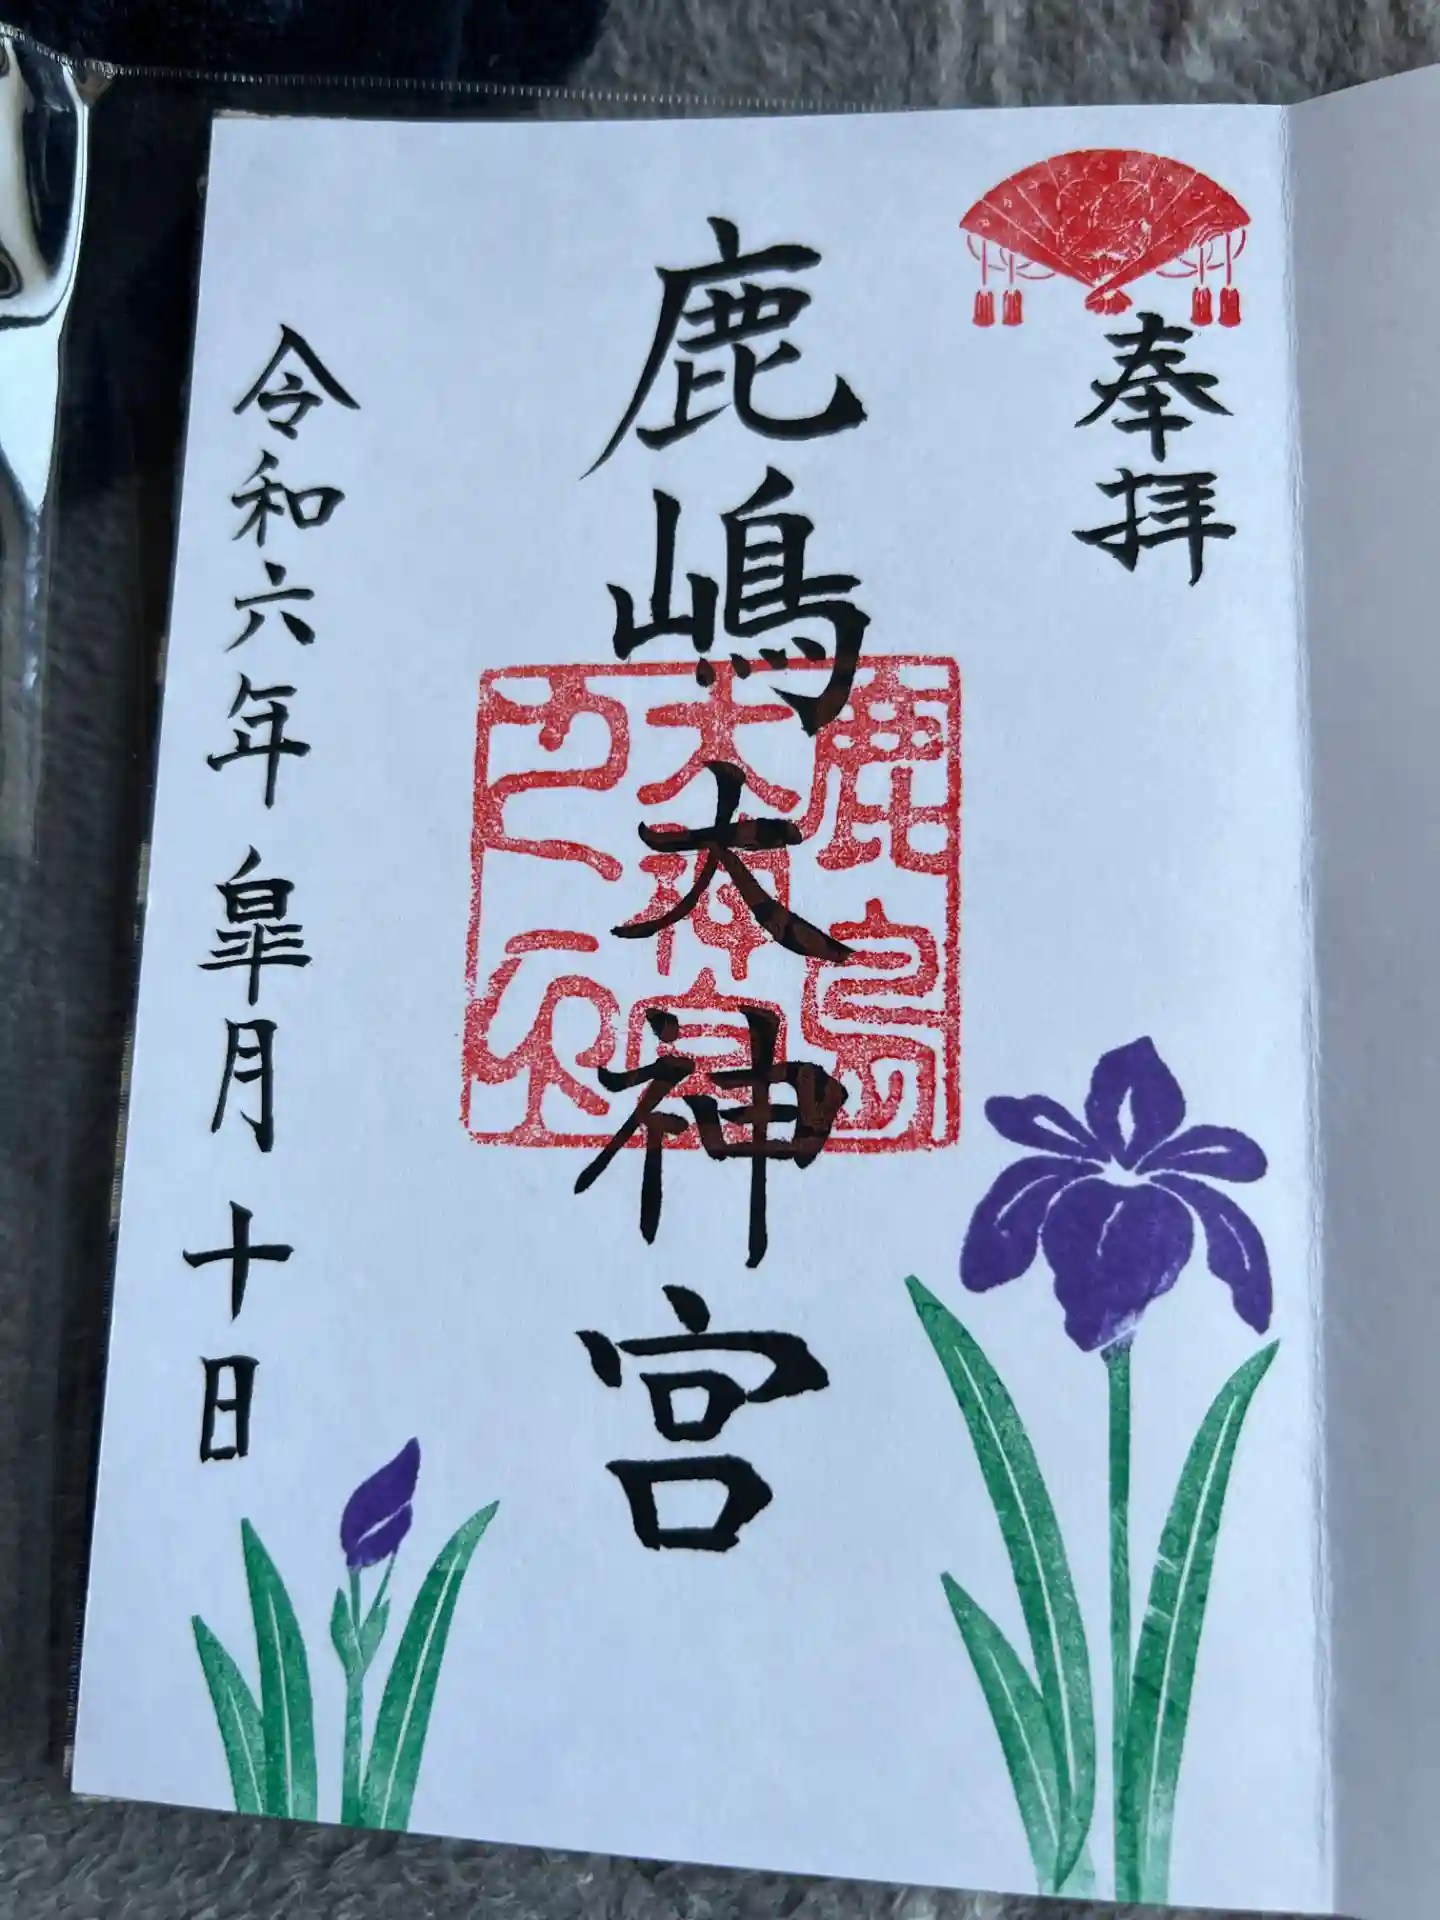 奉拝
鹿嶋大神宮
鹿島
大神宮
令和六年皐月十日